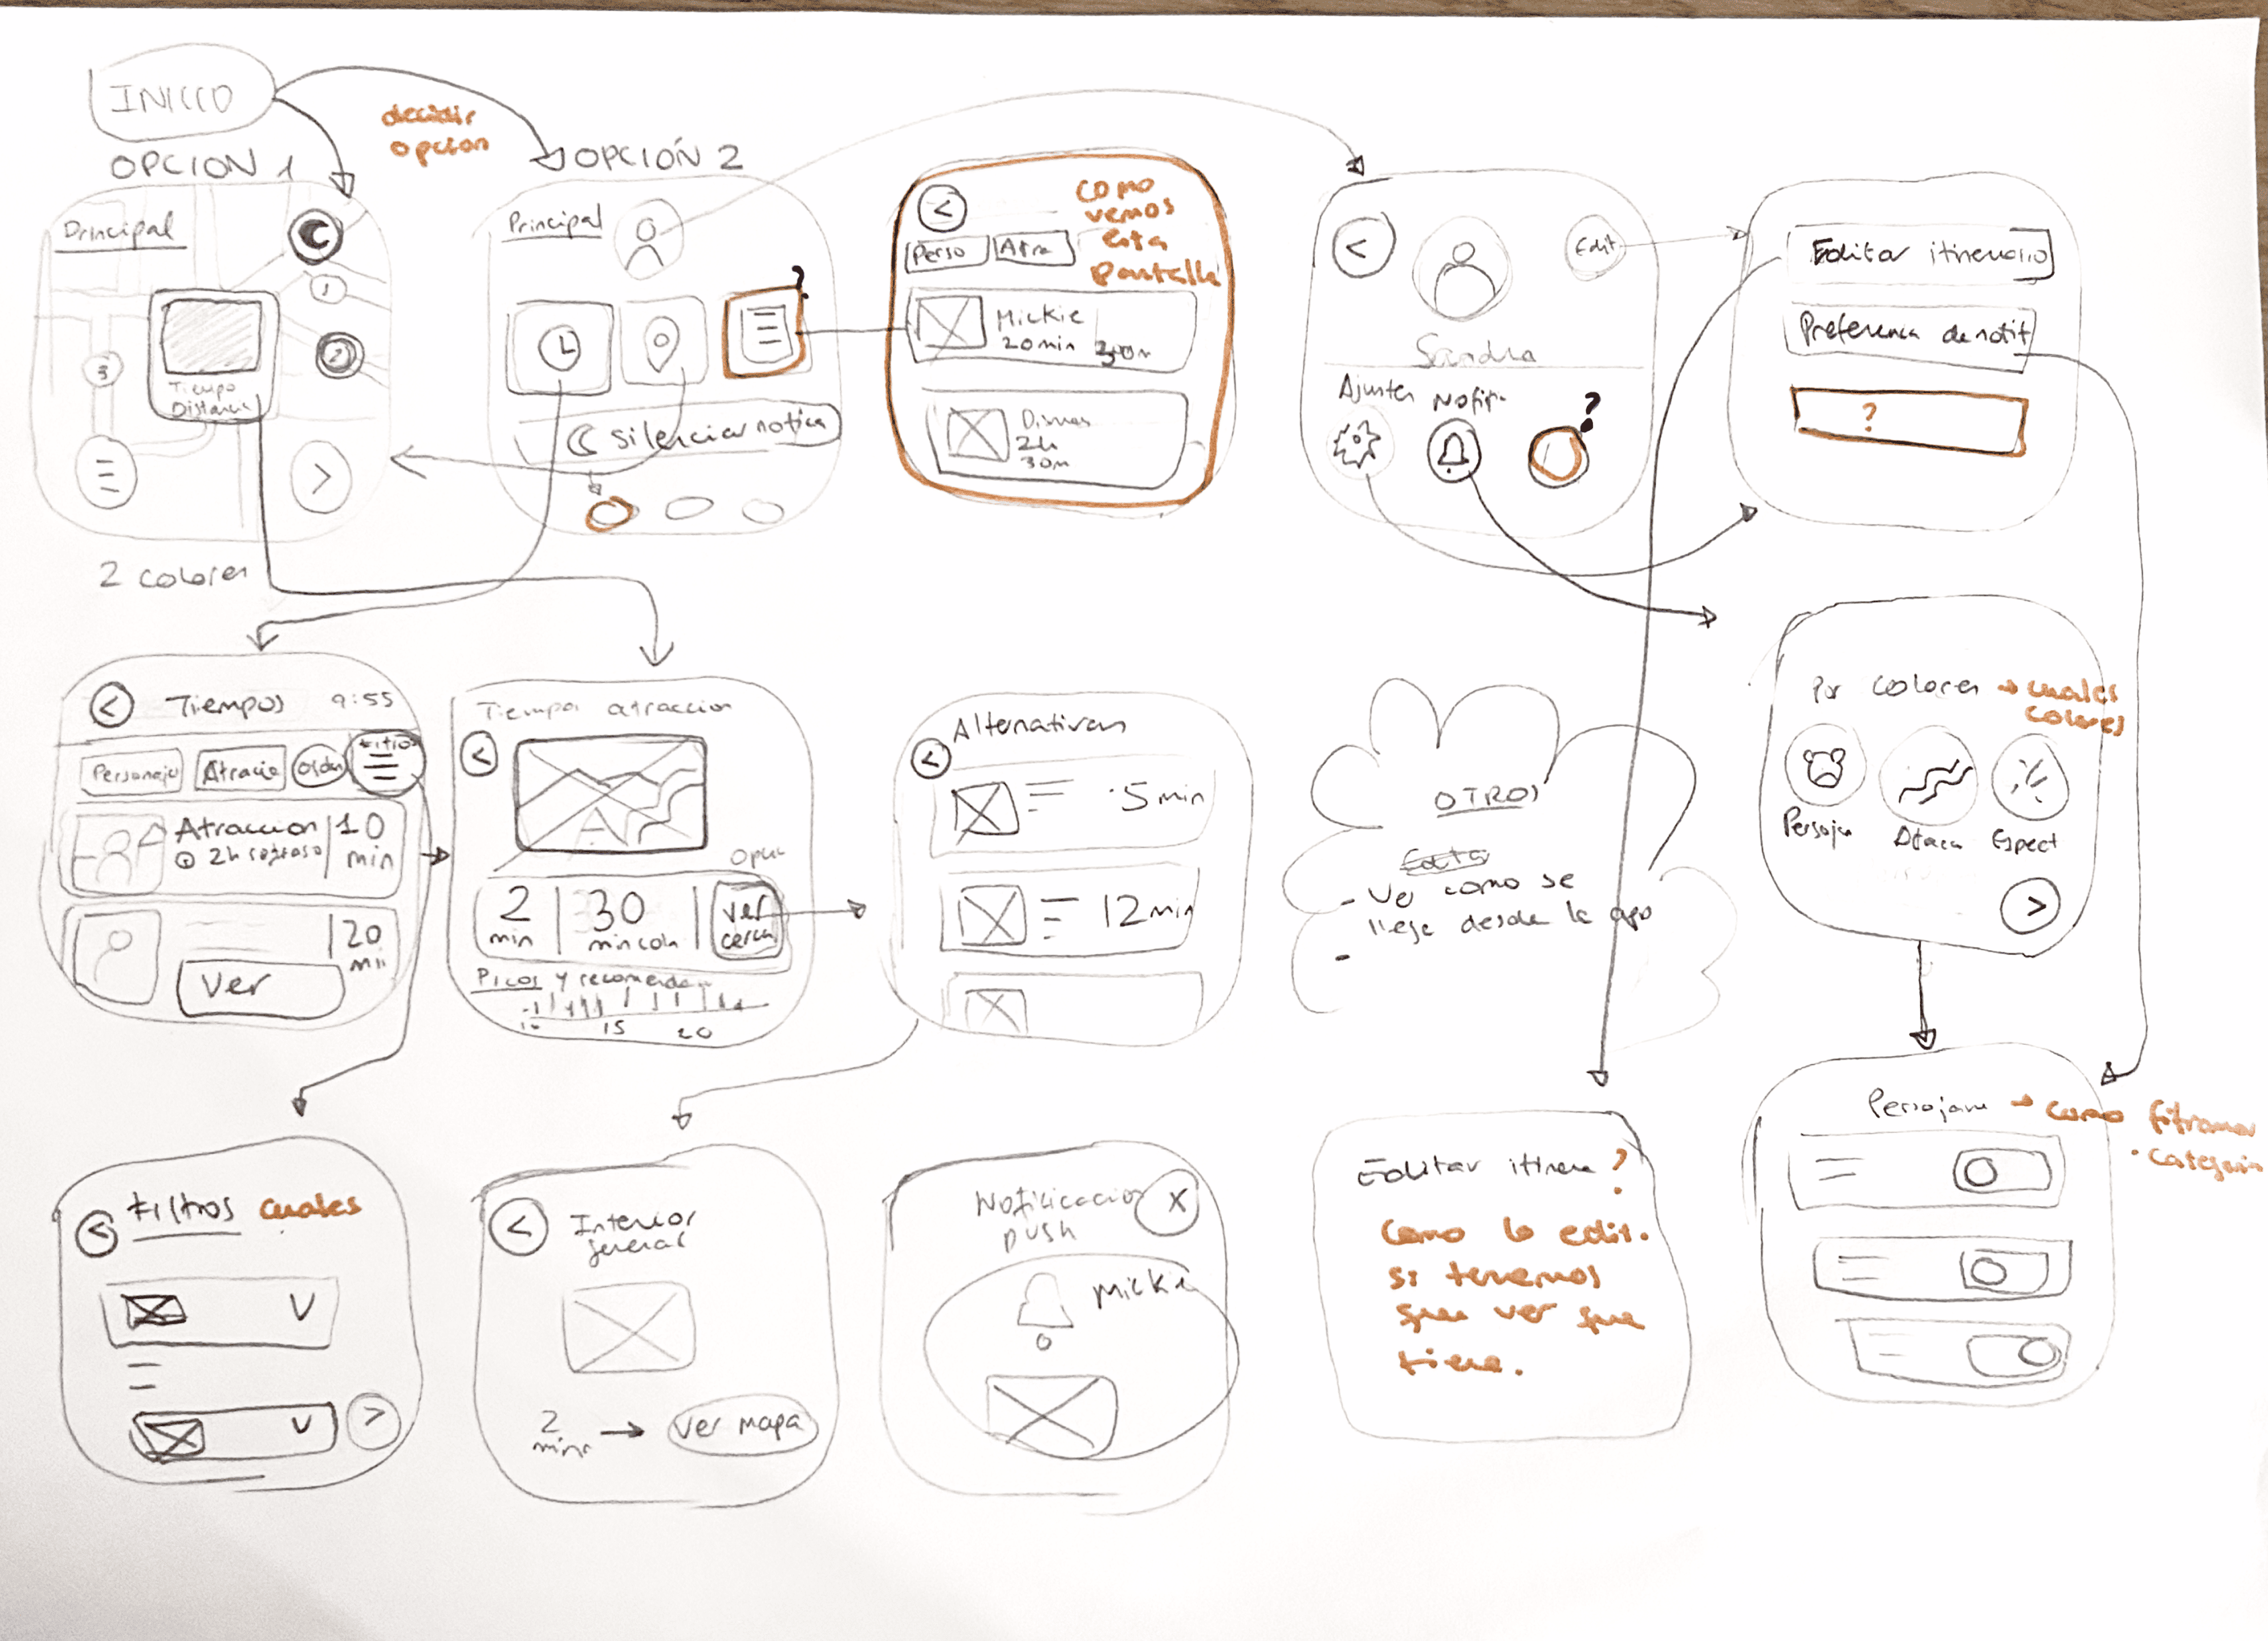 INICIO
decidir
opcion
OPCION 1
OPCIÓN 2
Principal
1
2
3
Tiempo
Distancia
2 colores
Principal
?
Silenciar notifica
como
vemos
esta
pantalla
Perso
Atra
Mickie
20min
300m
2h
30m
Edit
Sandra
Ajustes
Notif.
?
Editar itinerario
Preferencia de notif
?
Tiempos
9:55
Personaje
Atraccio
Orden
Filtros
Atraccion
10
min
2h
20
min
ver
Tiempo atraccion
2
min
30
min cola
ver
cerca
Picos y recomenda
15
20
Alternativas
5 min
12 min
OTROS
- Ver como se
llega desde la app
-
Por colores → cuales
colores
Persoja
Atracc
Espect
Filtros cuales
Interior
general
2
mins
→
Ver mapa
Notificacion
push
X
Mickie
Editar itinera ?
como lo edit.
si tenemos
que ver que
tiene.
Persojans → como filtramos
· categoria